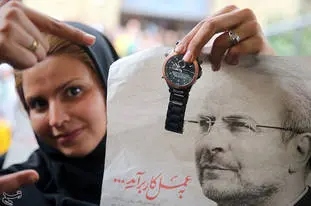 به عمل کار برآید...